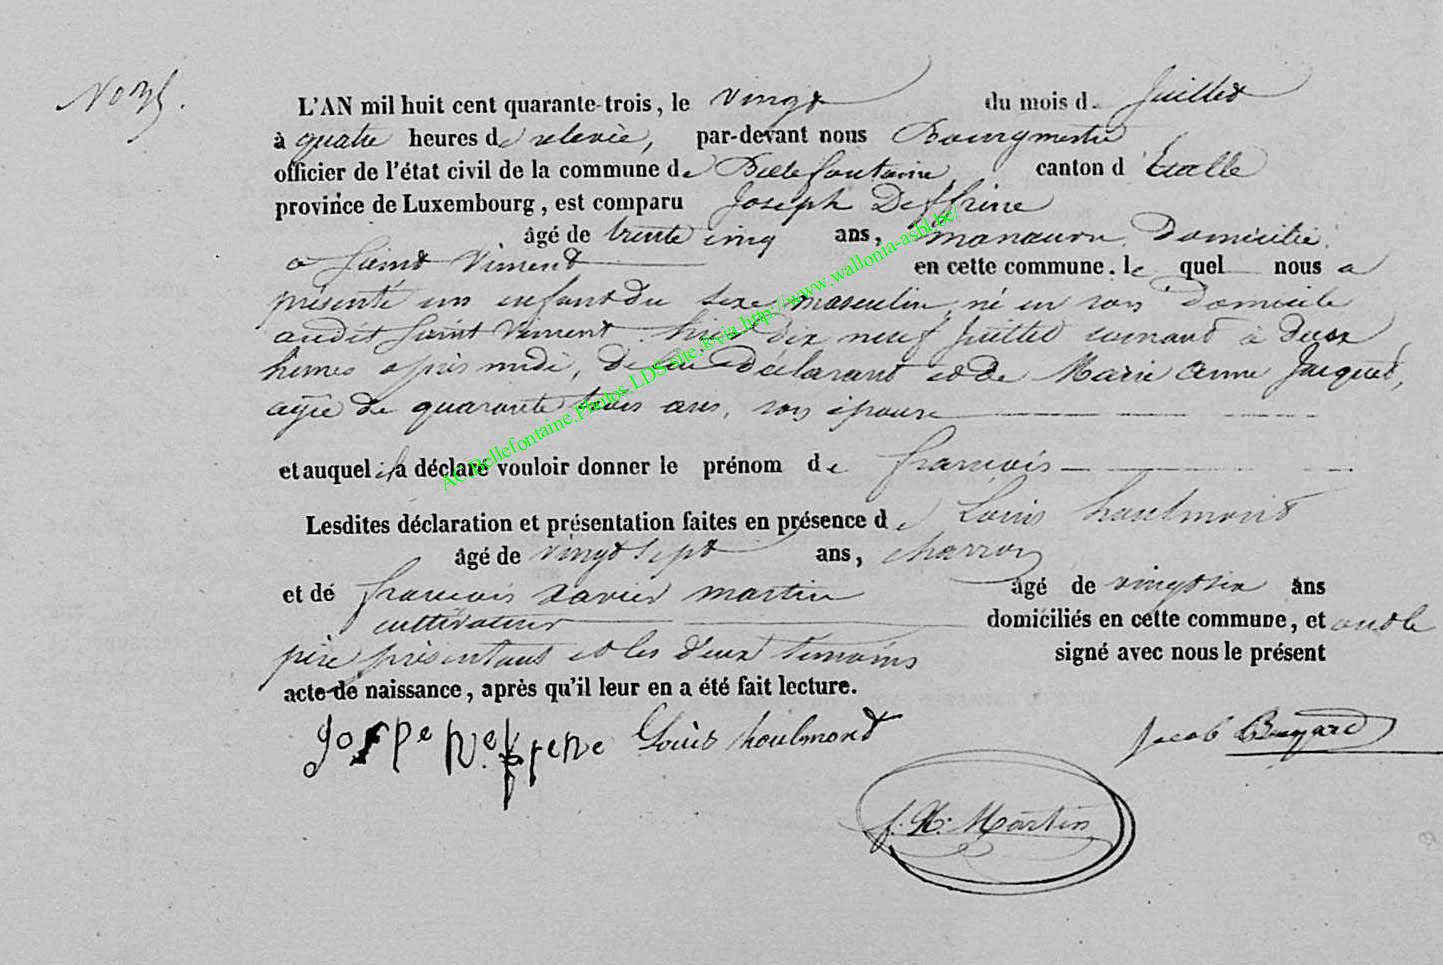 No 35.
L'AN mil huit cent quarante-trois, le vingt du mois de Juillet
à quatre heures de relevée, par-devant nous Bourgmestre
officier de l'état civil de la commune de Bellefontaine canton d'Etalle
province de Luxembourg, est comparu Joseph Deffrine
âgé de trente cinq ans, manœuvre domicilié
a Saint Vincent en cette commune. le quel nous a
présenté un enfant du sexe masculin né en son domicile
audit Saint Vincent hier dix neuf Juillet courant à deux
heures après midi, de lui déclarant et de Marie Anne Jacquet,
agée de quarante trois ans, son épouse
et auquel il a déclaré vouloir donner le prénom de françois
Lesdites déclaration et présentation faites en présence de Louis houlmont
âgé de vingt sept ans, charron
et de françois xavier martin âgé de vingt six ans
cultivateur domiciliés en cette commune, et ont le
père présentant et les deux temoins signé avec nous le présent
acte de naissance, après qu'il leur en a été fait lecture.
Louis houlmont
Jacob
f. X. Martin
AC.Bellefontaine.Photos.LDS.site.fr via http://www.wallonia-asbl.be/